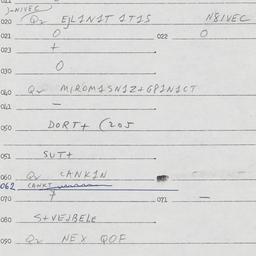 020 Qv EJL1N1T 1T1S N81VEC
021 O 022 O
023 +
030 O
040 Qv MIROM1SN1Z+GP1N1CT
041 —
050 DORT+ (205
051 SUT+
060 Qv CANK1N
062 CANKT
070 7 071 —
080 S+VEJBELE
090 Qv NEX QOF